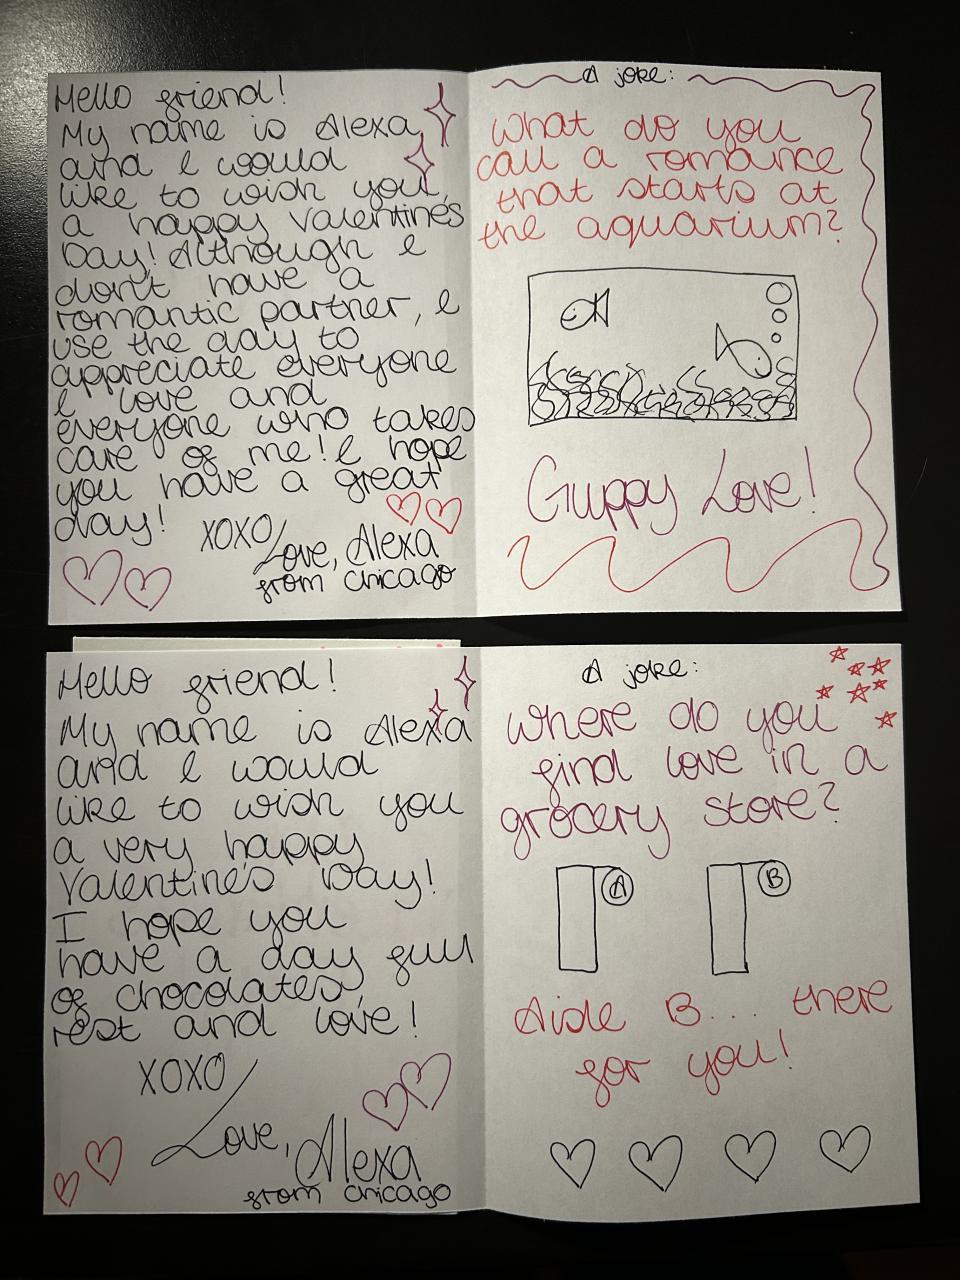 Hello friend!
My name is Alexa
and I would
like to wish you
a happy Valentine's
Day! Although I
don't have a
romantic partner, I
use the day to
appreciate everyone
I love and
everyone who takes
care of me! I hope
you have a great
day!
XOXO
Love, Alexa
from Chicago
A joke:
What do you
call a romance
that starts at
the aquarium?
Guppy Love!
Hello friend!
My name is Alexa
and I would
like to wish you
a very happy
Valentine's Day!
I hope you
have a day full
of chocolates,
rest and love!
XOXO
Love, Alexa
from Chicago
A joke:
Where do you
find love in a
grocery store?
A B
Aisle B... there
for you!